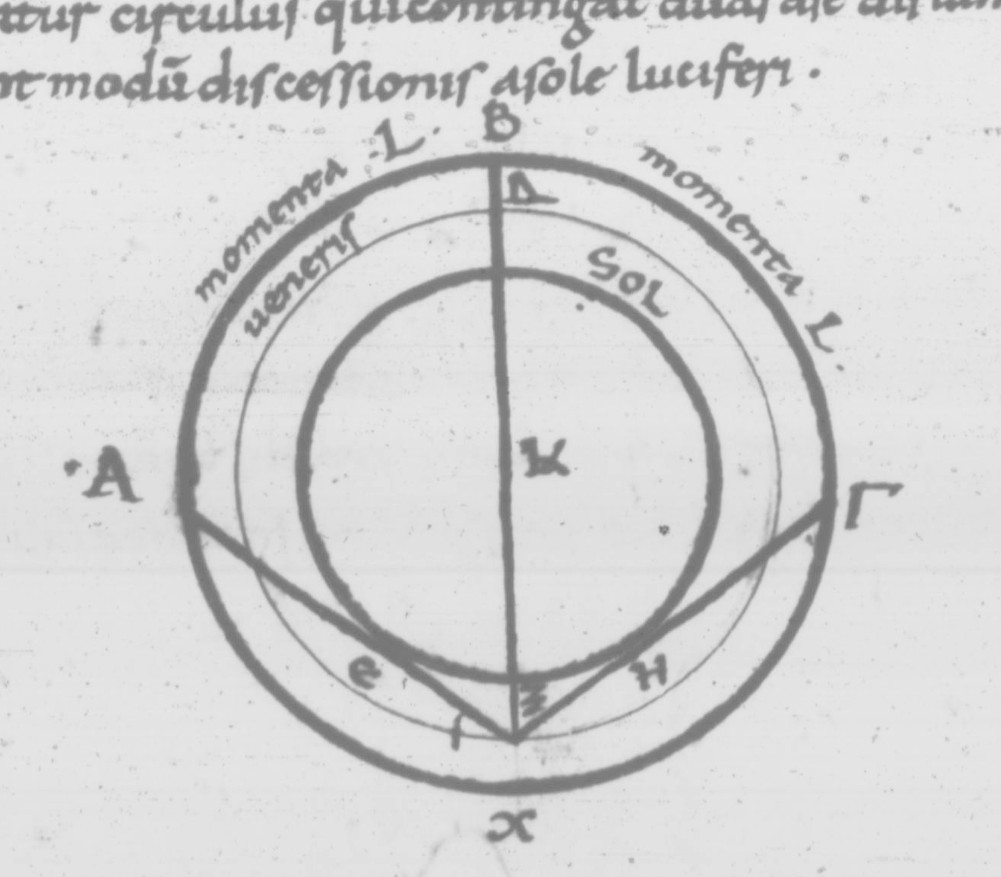 circulus qui contingat duas
modū discessionis asole luciferi .
B
momenta .L.
momenta L.
Δ
ueneris
SOL
.A
K
Γ
e
H
Ξ
I
x